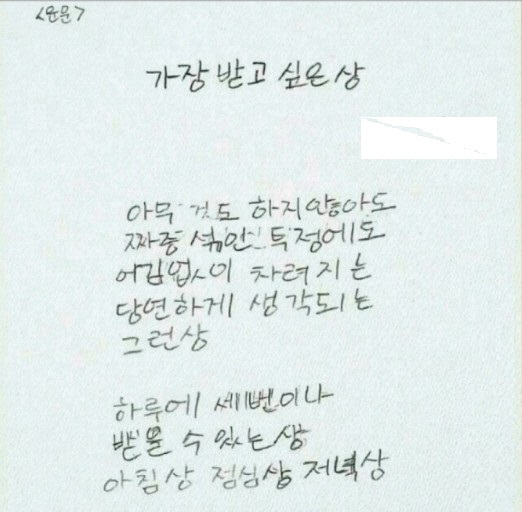 <운문>
가장 받고 싶은 상
아무 것도 하지않아도
짜증 섞인 투정에도
어김없이 차려지는
당연하게 생각되는
그런상
하루에 세번이나
받을 수 있는상
아침상 점심상 저녁상